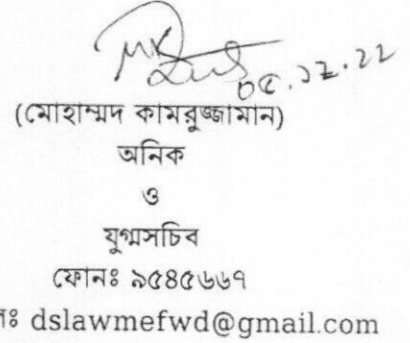 ০৫.১২.২২
(মোহাম্মদ কামরুজ্জামান)
অনিক
ও
যুগ্মসচিব
ফোনঃ ৯৫৪৫৬৬৭
dslawmefwd@gmail.com